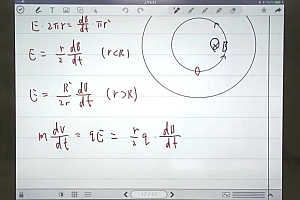 E · 2πr = dB/dt πr²
E = r/2 dB/dt (r<R)
B
E = R²/2r dB/dt (r>R)
m dv/dt = qE = r/2 q dB/dt